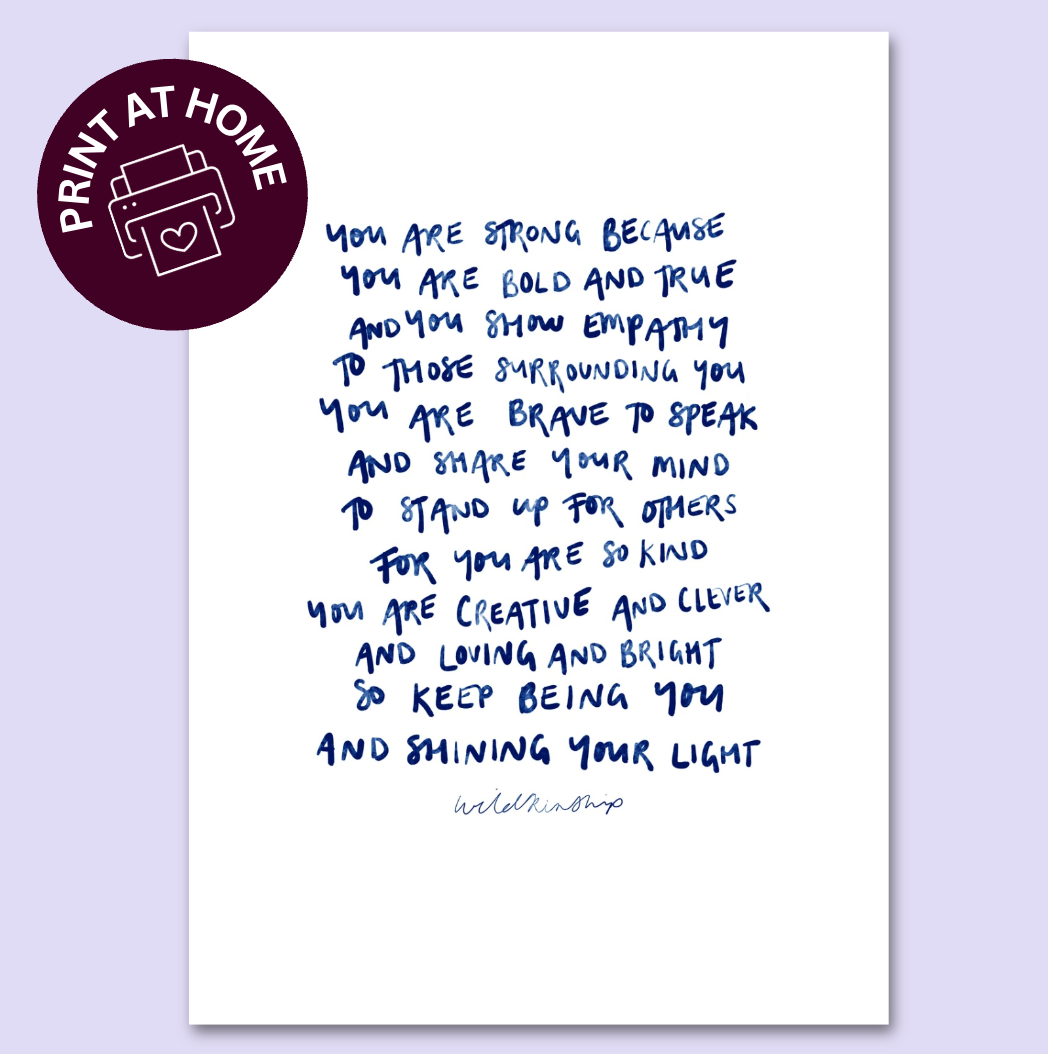 PRINT AT HOME
YOU ARE STRONG BECAUSE
YOU ARE BOLD AND TRUE
AND YOU SHOW EMPATHY
TO THOSE SURROUNDING YOU
YOU ARE BRAVE TO SPEAK
AND SHARE YOUR MIND
TO STAND UP FOR OTHERS
FOR YOU ARE SO KIND
YOU ARE CREATIVE AND CLEVER
AND LOVING AND BRIGHT
SO KEEP BEING YOU
AND SHINING YOUR LIGHT
wildkinship